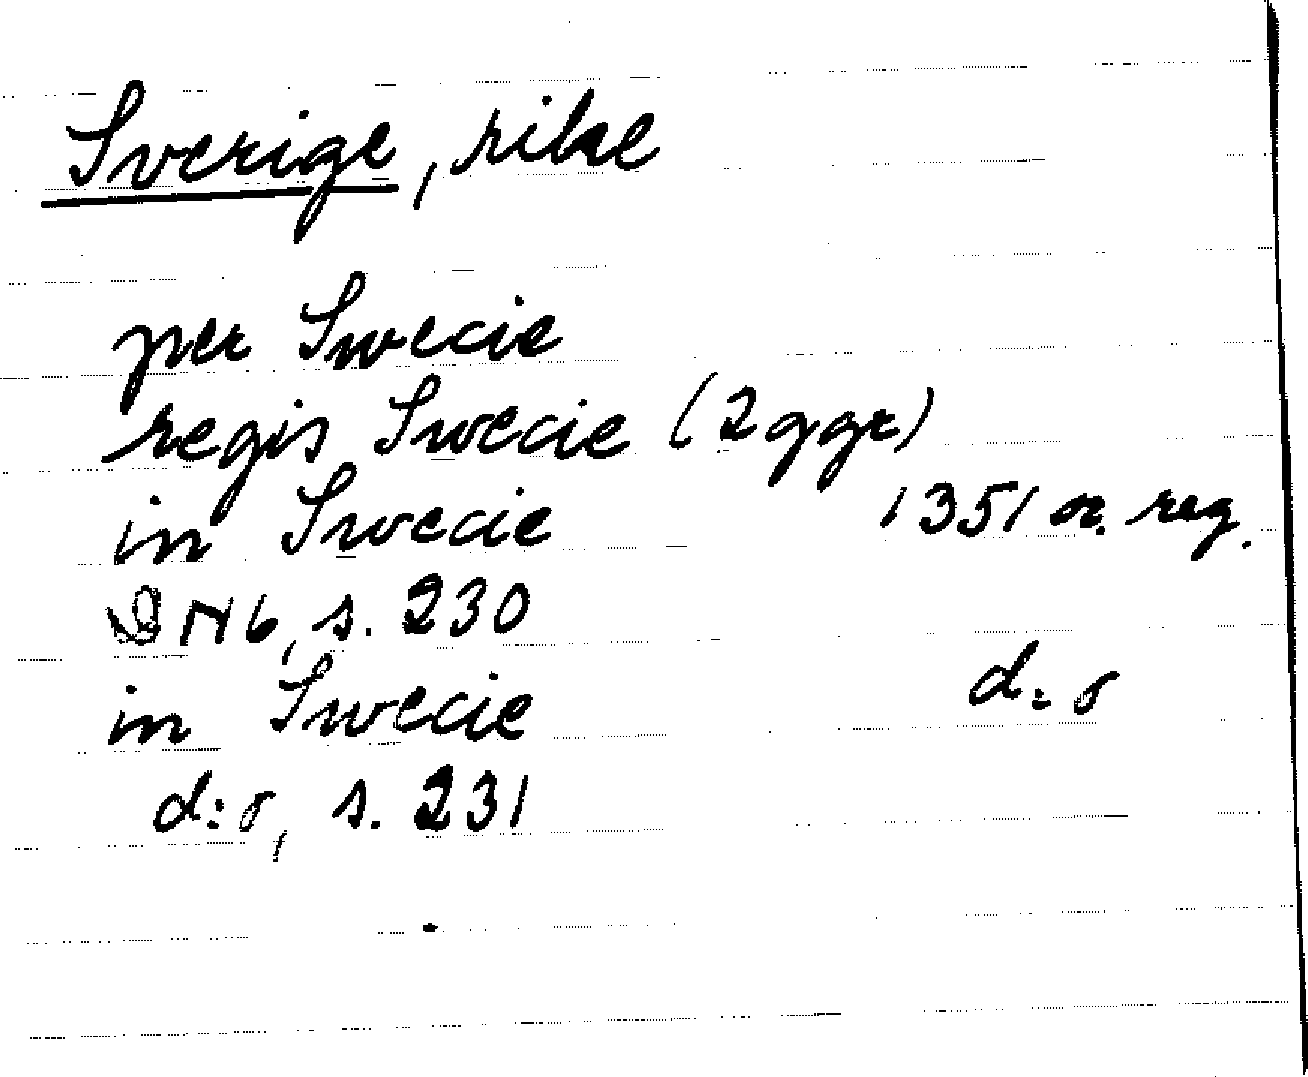 Sverige, rike
per Swecie
regis Swecie (2 ggr)
in Swecie 1351 or. reg.
DN 6, s. 230
in Swecie d:o
d:o, s. 231